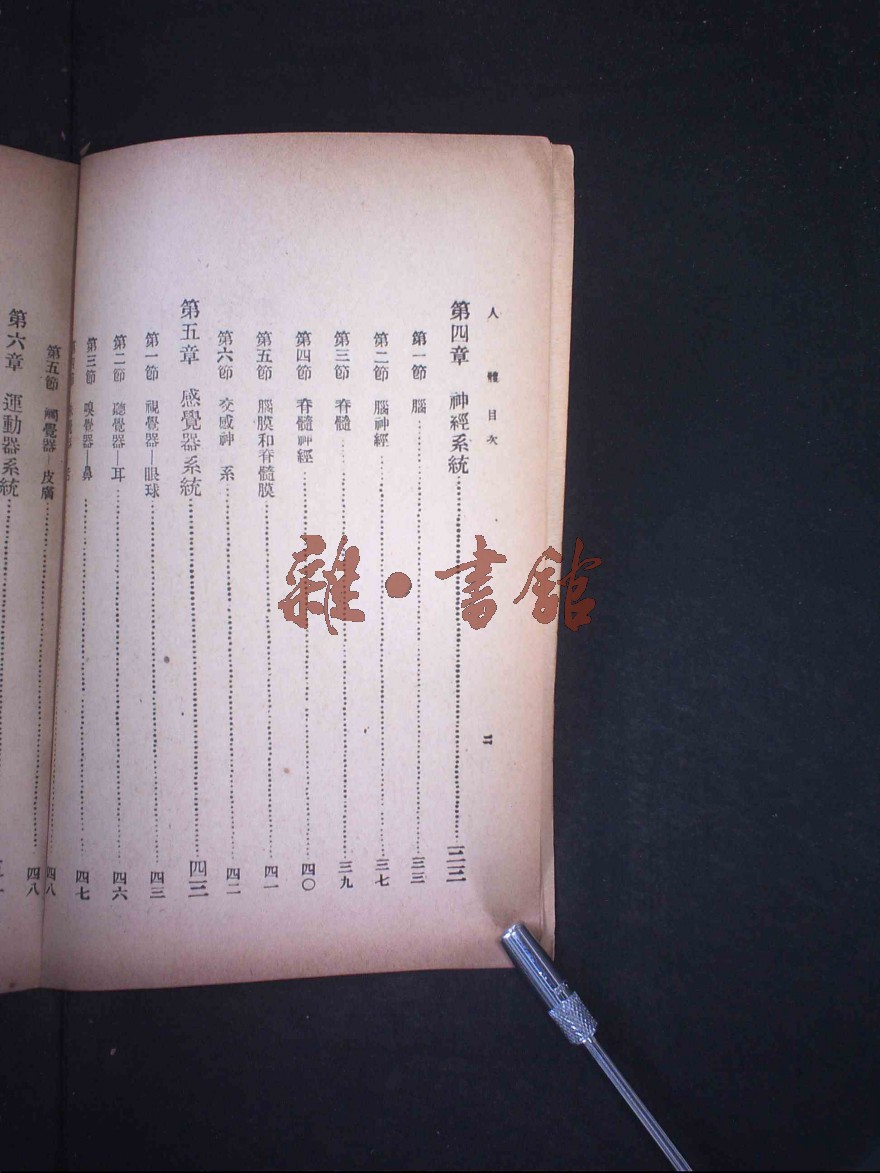 人體 目次
二
第四章 神經系統……三三
第一節 腦……三三
第二節 腦神經……三七
第三節 脊髓……三九
第四節 脊髓神經……四〇
第五節 腦膜和脊髓膜……四一
第六節 交感神 系……四二
第五章 感覺器系統……四三
第一節 視覺器—眼球……四三
第二節 聽覺器—耳……四六
第三節 嗅覺器—鼻……四七
第五節 觸覺器—皮膚……四八
第六章 運動器系統……
雜·書館